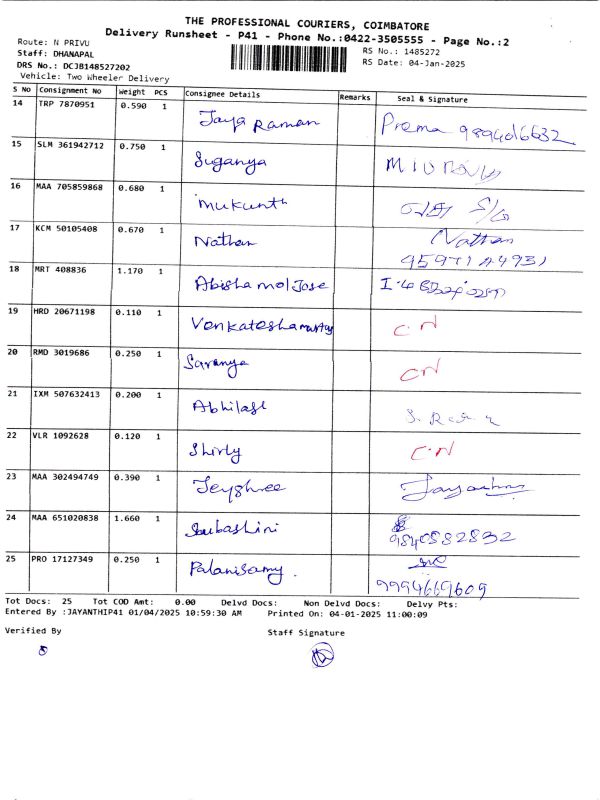 THE PROFESSIONAL COURIERS, COIMBATORE
Delivery Runsheet - P41 - Phone No.:0422-3505555 - Page No.:2
Route: N PRIVU
RS No.: 1485272
Staff: DHANAPAL
RS Date: 04-Jan-2025
DRS No.: DC3B148527202
Vehicle: Two Wheeler Delivery
S No Consignment No Weight PCS Consignee Details Remarks Seal & Signature
14 TRP 7870951 0.590 1 Jaya Raman Prema 9894016632
15 SLM 361942712 0.750 1 Suganya
16 MAA 705859868 0.680 1 Mukunth
17 KCM 50105408 0.670 1 Nathan Nathan
18 MRT 408836 1.170 1 Abisha mol Jose
19 HRD 20671198 0.110 1 Venkateshamurthy CN
20 RMD 3019686 0.250 1 Saranya CN
21 IXM 507632413 0.200 1 Abhilash
22 VLR 1092628 0.120 1 Shirly C.N
23 MAA 302494749 0.390 1 Jeyshree
24 MAA 651020838 1.660 1 Soubashini 9840582832
25 PRO 17127349 0.250 1 Palanisamy. 9994669609
Tot Docs: 25 Tot COD Amt: 0.00 Delvd Docs: Non Delvd Docs: Delvy Pts:
Entered By :JAYANTHIP41 01/04/2025 10:59:30 AM Printed On: 04-01-2025 11:00:09
Verified By Staff Signature